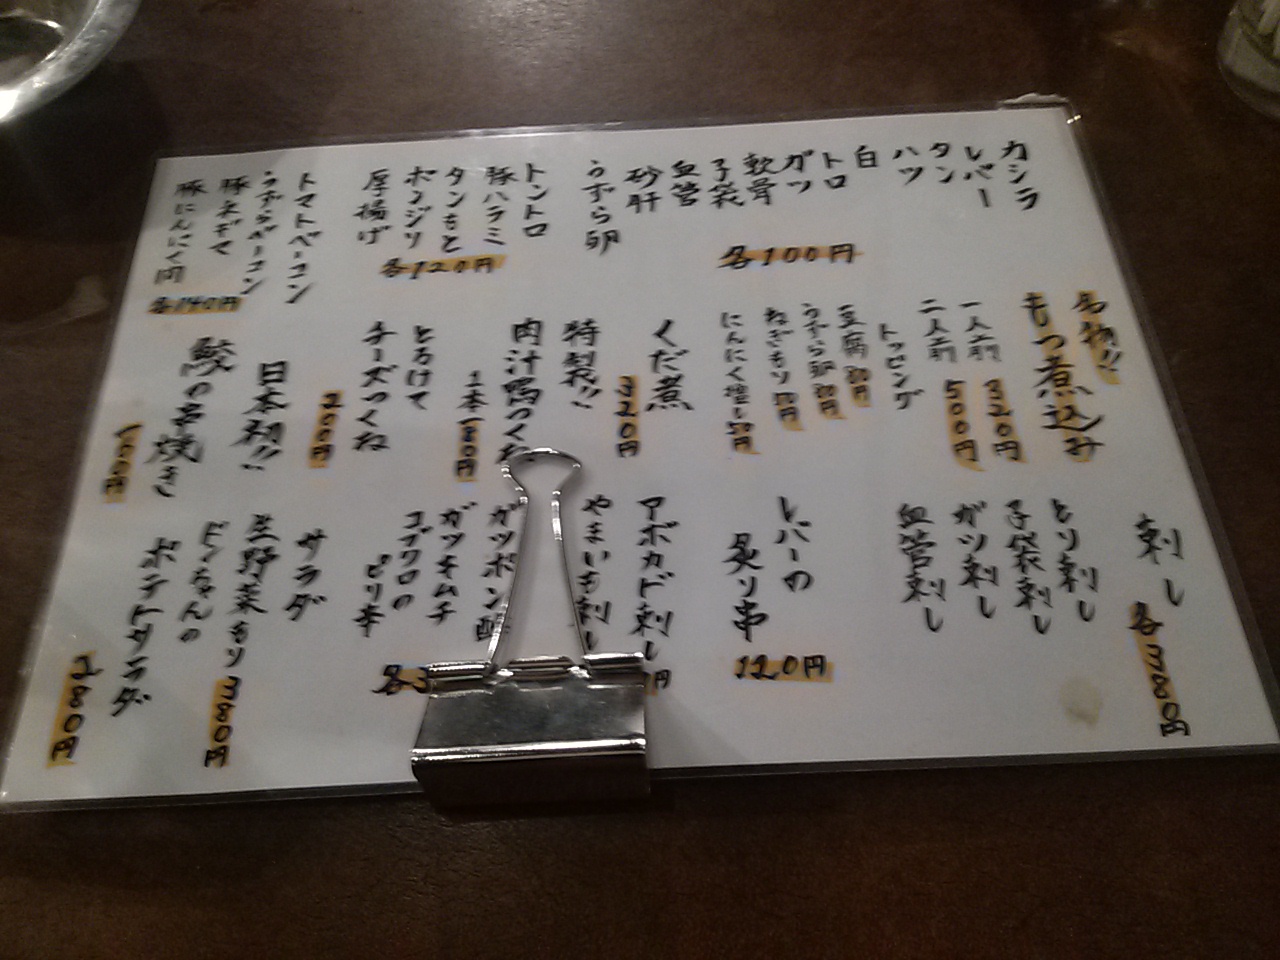 カシラ
レバー
タン
ハツ
白
トロ
ガツ
軟骨
子袋
血管
砂肝
うずら卵
各100円
トントロ
豚ハラミ
タンもと
ボンジリ
厚揚げ
各120円
トマトベーコン
うずらベーコン
豚ネギマ
豚にんにく肉
各140円
名物!!
もつ煮込み
一人前 320円
二人前 500円
トッピング
豆腐
うずら卵
ねぎもり
にんにく増し 50円
くだ煮
320円
特製!!
肉汁鴨つくね
1本180円
とろけて
チーズつくね
200円
日本初!!
鮫の串焼き
刺し
各380円
とり刺し
子袋刺し
ガツ刺し
血管刺し
レバーの
炙り串
120円
アボカド刺し
やまいも刺し
ガツポン酢
ガツキムチ
コブクロの
ピリ辛
サラダ
生野菜もり
380円
ポテトサラダ
280円